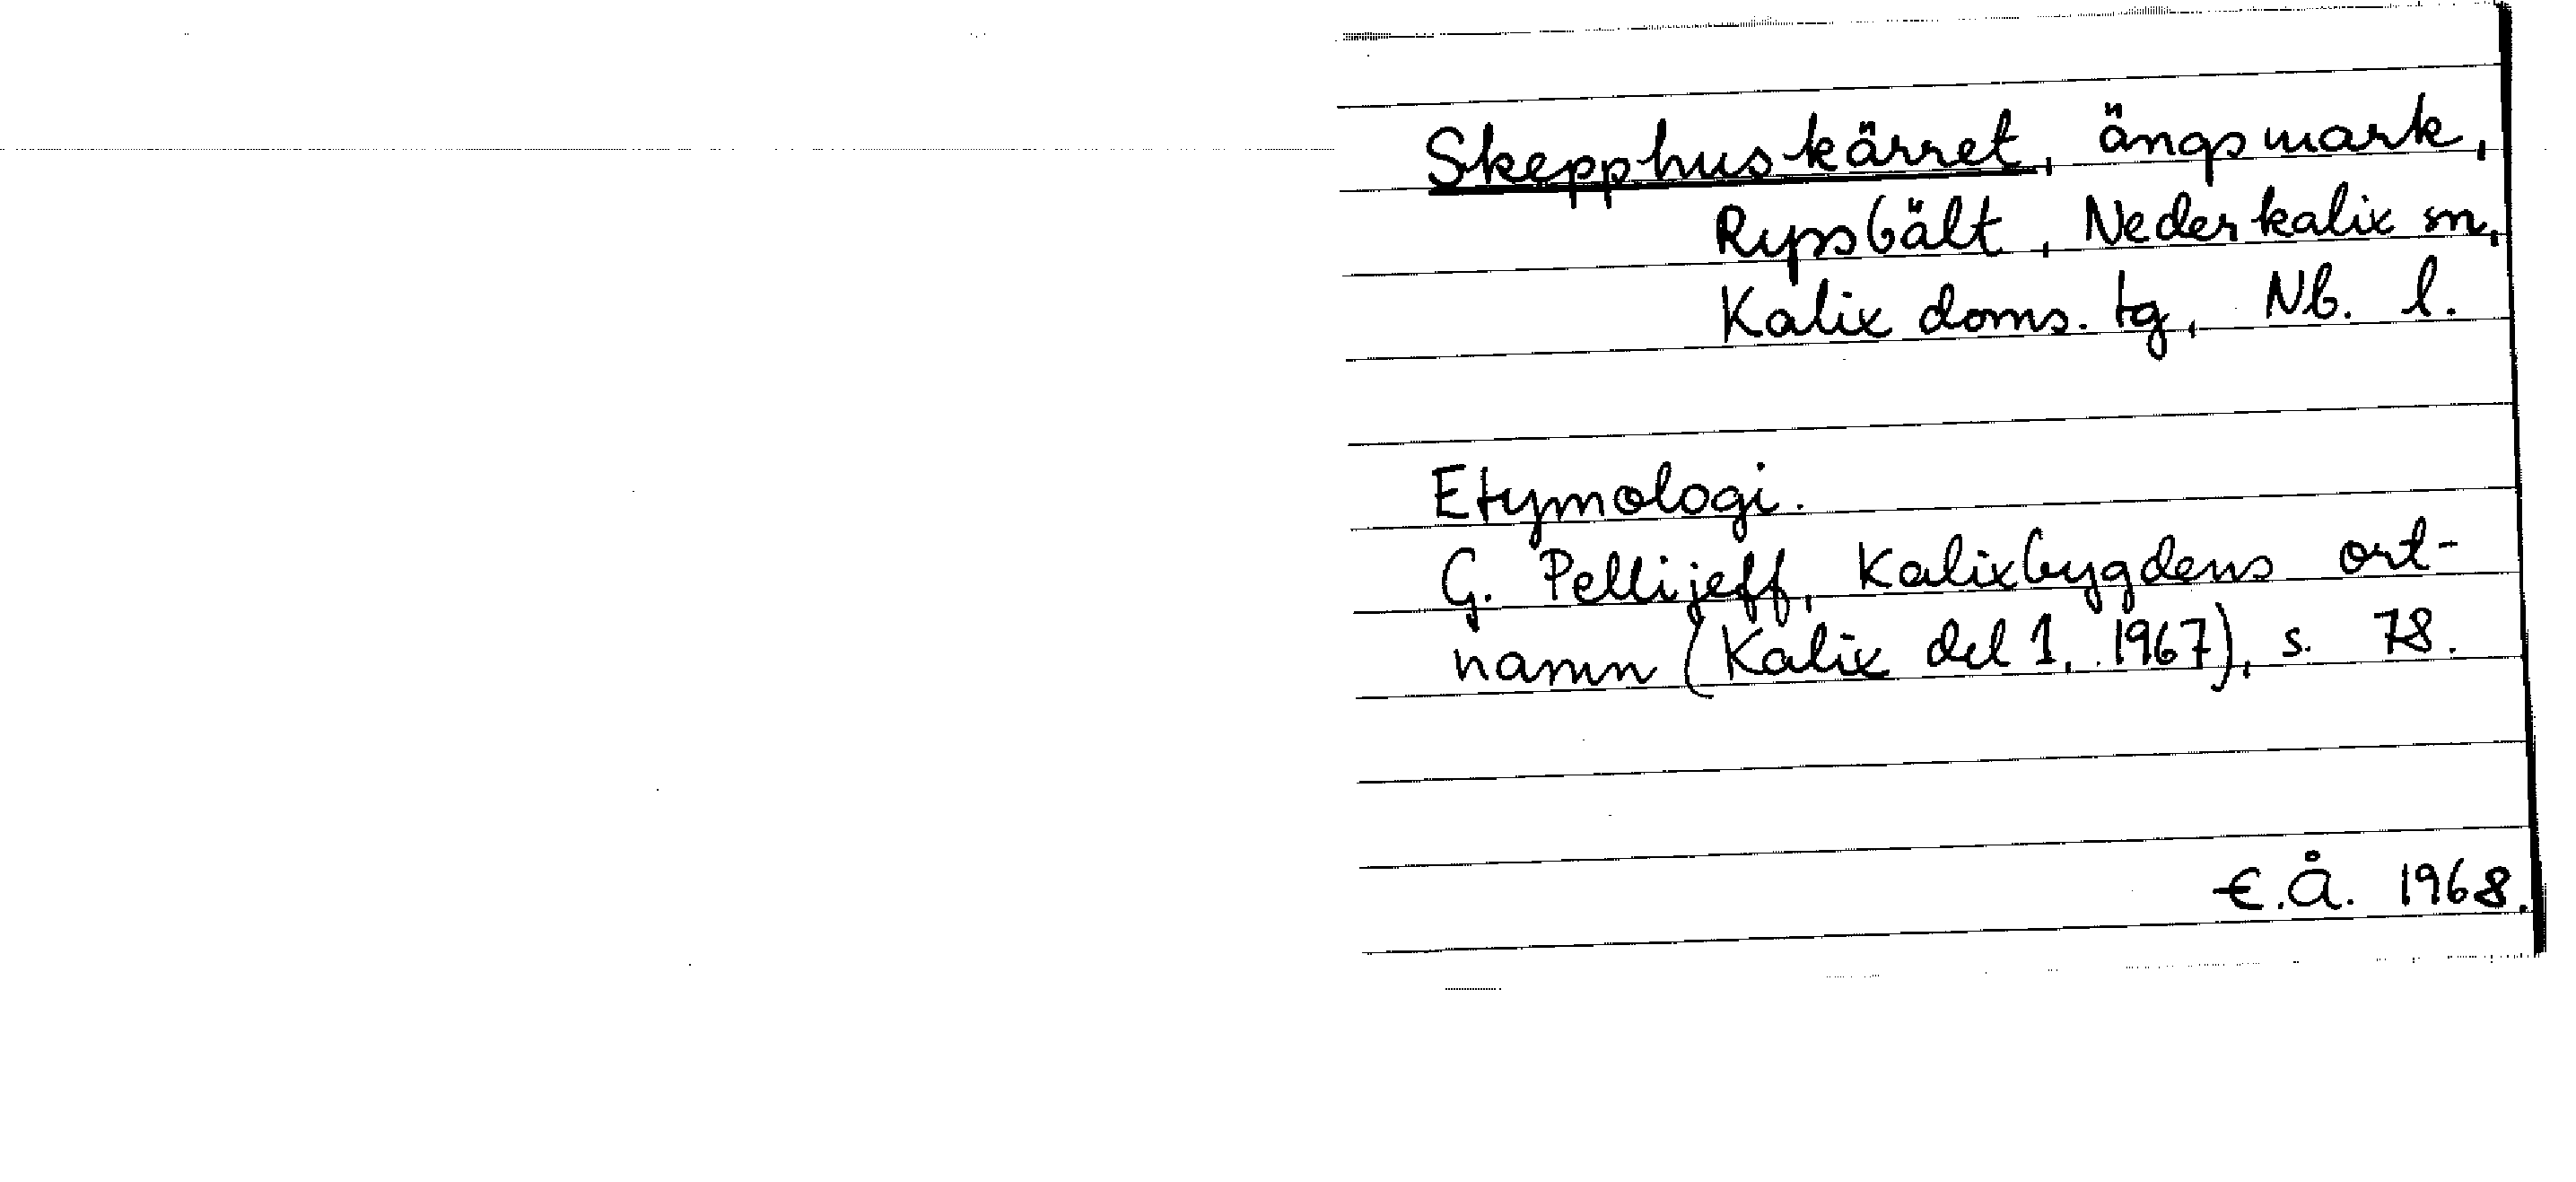 Skepphuskärret, ängsmark,
Rypsbält, Nederkalix sn,
Kalix doms. tg, Nb. l.
Etymologi.
G. Pellijeff, Kalixbygdens ort-
namn (Kalix del 1, 1967), s. 78.
E.Å. 1968.